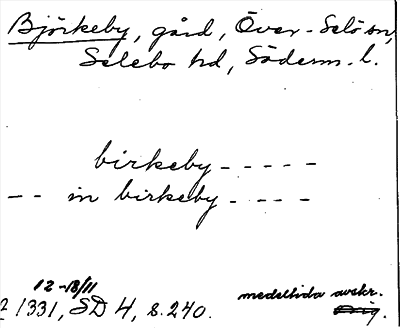 Björkeby, gård, Över-Selö sn,
Selebo hd, Söderm. l.
birkeby - - - - -
- - in birkeby - - - -
12-18/11 medeltida avskr.
2 1331, SD 4, s. 240. Orig.